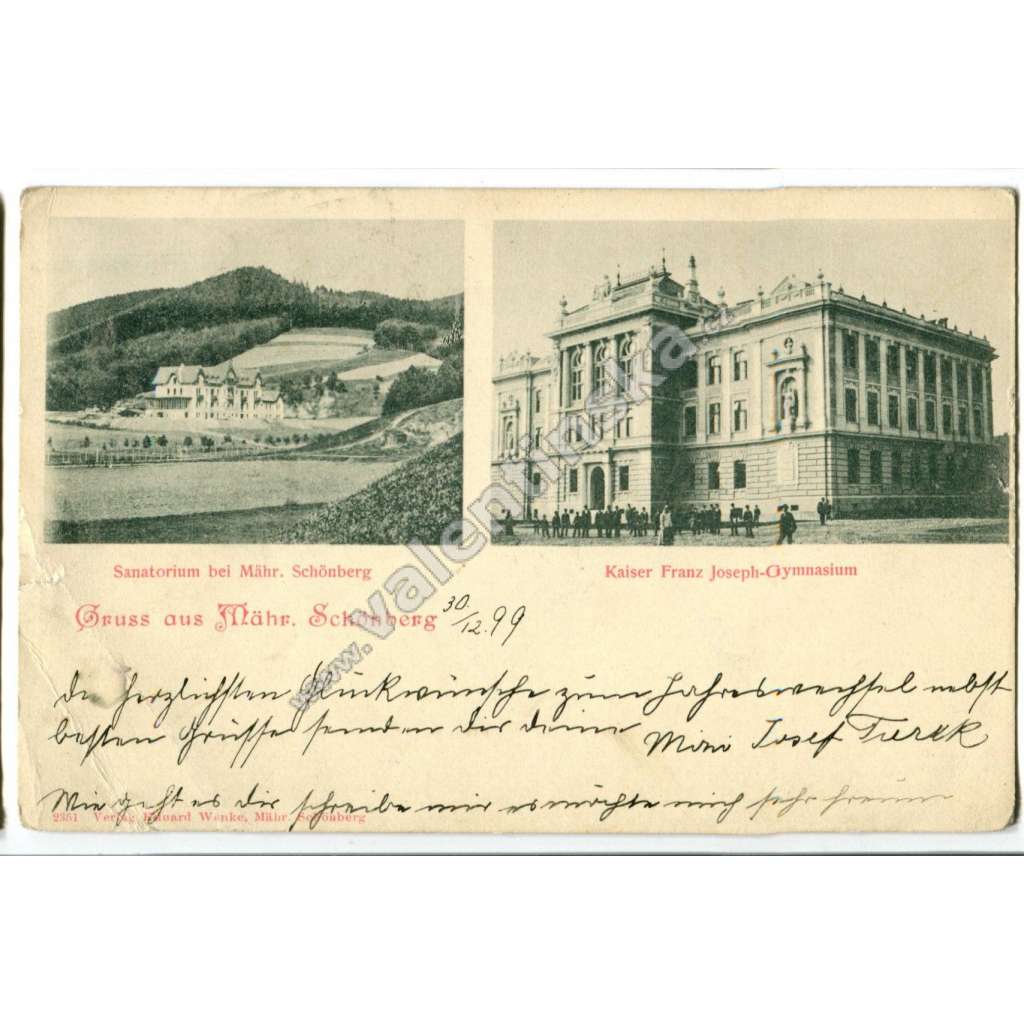 Sanatorium bei Mähr. Schönberg
Kaiser Franz Joseph-Gymnasium
Gruss aus Mähr. Schönberg
30./12.99
Die herzlichsten Glückwünsche zum Jahreswechsel nebst
besten Grüsse senden Dir deine
Mizi Josef Turek
Wie geht es dir schreibe mir es möchte mich sehr freuen
2351 Verlag Eduard Wenke, Mähr. Schönberg
www.valentinska.cz